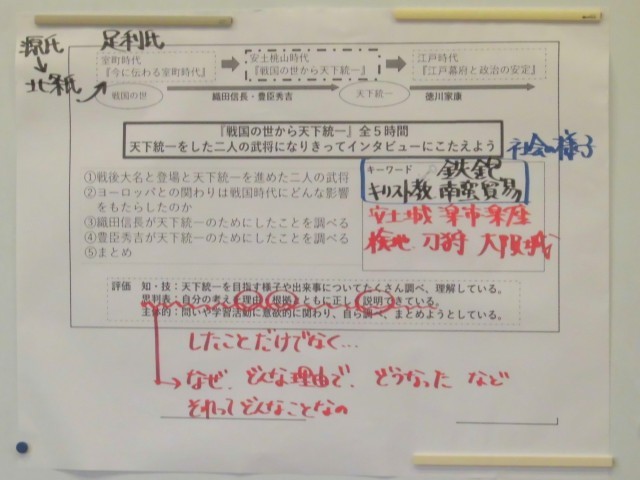 源氏
↓
北条氏
足利氏
室町時代
『今に伝わる室町時代』
安土桃山時代
『戦国の世から天下統一』
江戸時代
『江戸幕府と政治の安定』
戦国の世
織田信長・豊臣秀吉
天下統一
徳川家康
『戦国の世から天下統一』全5時間
天下統一をした二人の武将になりきってインタビューにこたえよう
社会の様子
①戦後大名と登場と天下統一を進めた二人の武将
②ヨーロッパとの関わりは戦国時代にどんな影響
をもたらしたのか
③織田信長が天下統一のためにしたことを調べる
④豊臣秀吉が天下統一のためにしたことを調べる
⑤まとめ
キーワード
鉄鉋
キリスト教 南蛮貿易
安土城 楽市楽座
検地 刀狩 大阪城
評価 知・技:天下統一を目指す様子や出来事についてたくさん調べ、理解している。
思判表:自分の考えを理由や根拠とともに正しく説明できている。
主体的:問いや学習活動に意欲的に関わり、自ら調べ、まとめようとしている。
したことだけでなく…
なぜ、どんな理由で、どうなった など
それってどんなことなの